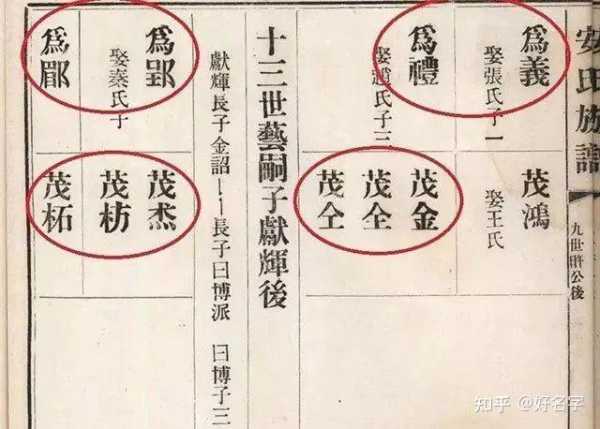 安氏族譜
九世將公後
爲義
娶張氏子一
爲禮
娶趙氏子三
茂鴻
娶王氏
茂金
茂仝
茂仝
十三世藝嗣子獻輝後
獻輝長子金詔
長子曰博派
曰博子三
爲郢
娶秦氏子
爲郿
茂杰
茂枋
茂柘
知乎 @好名字